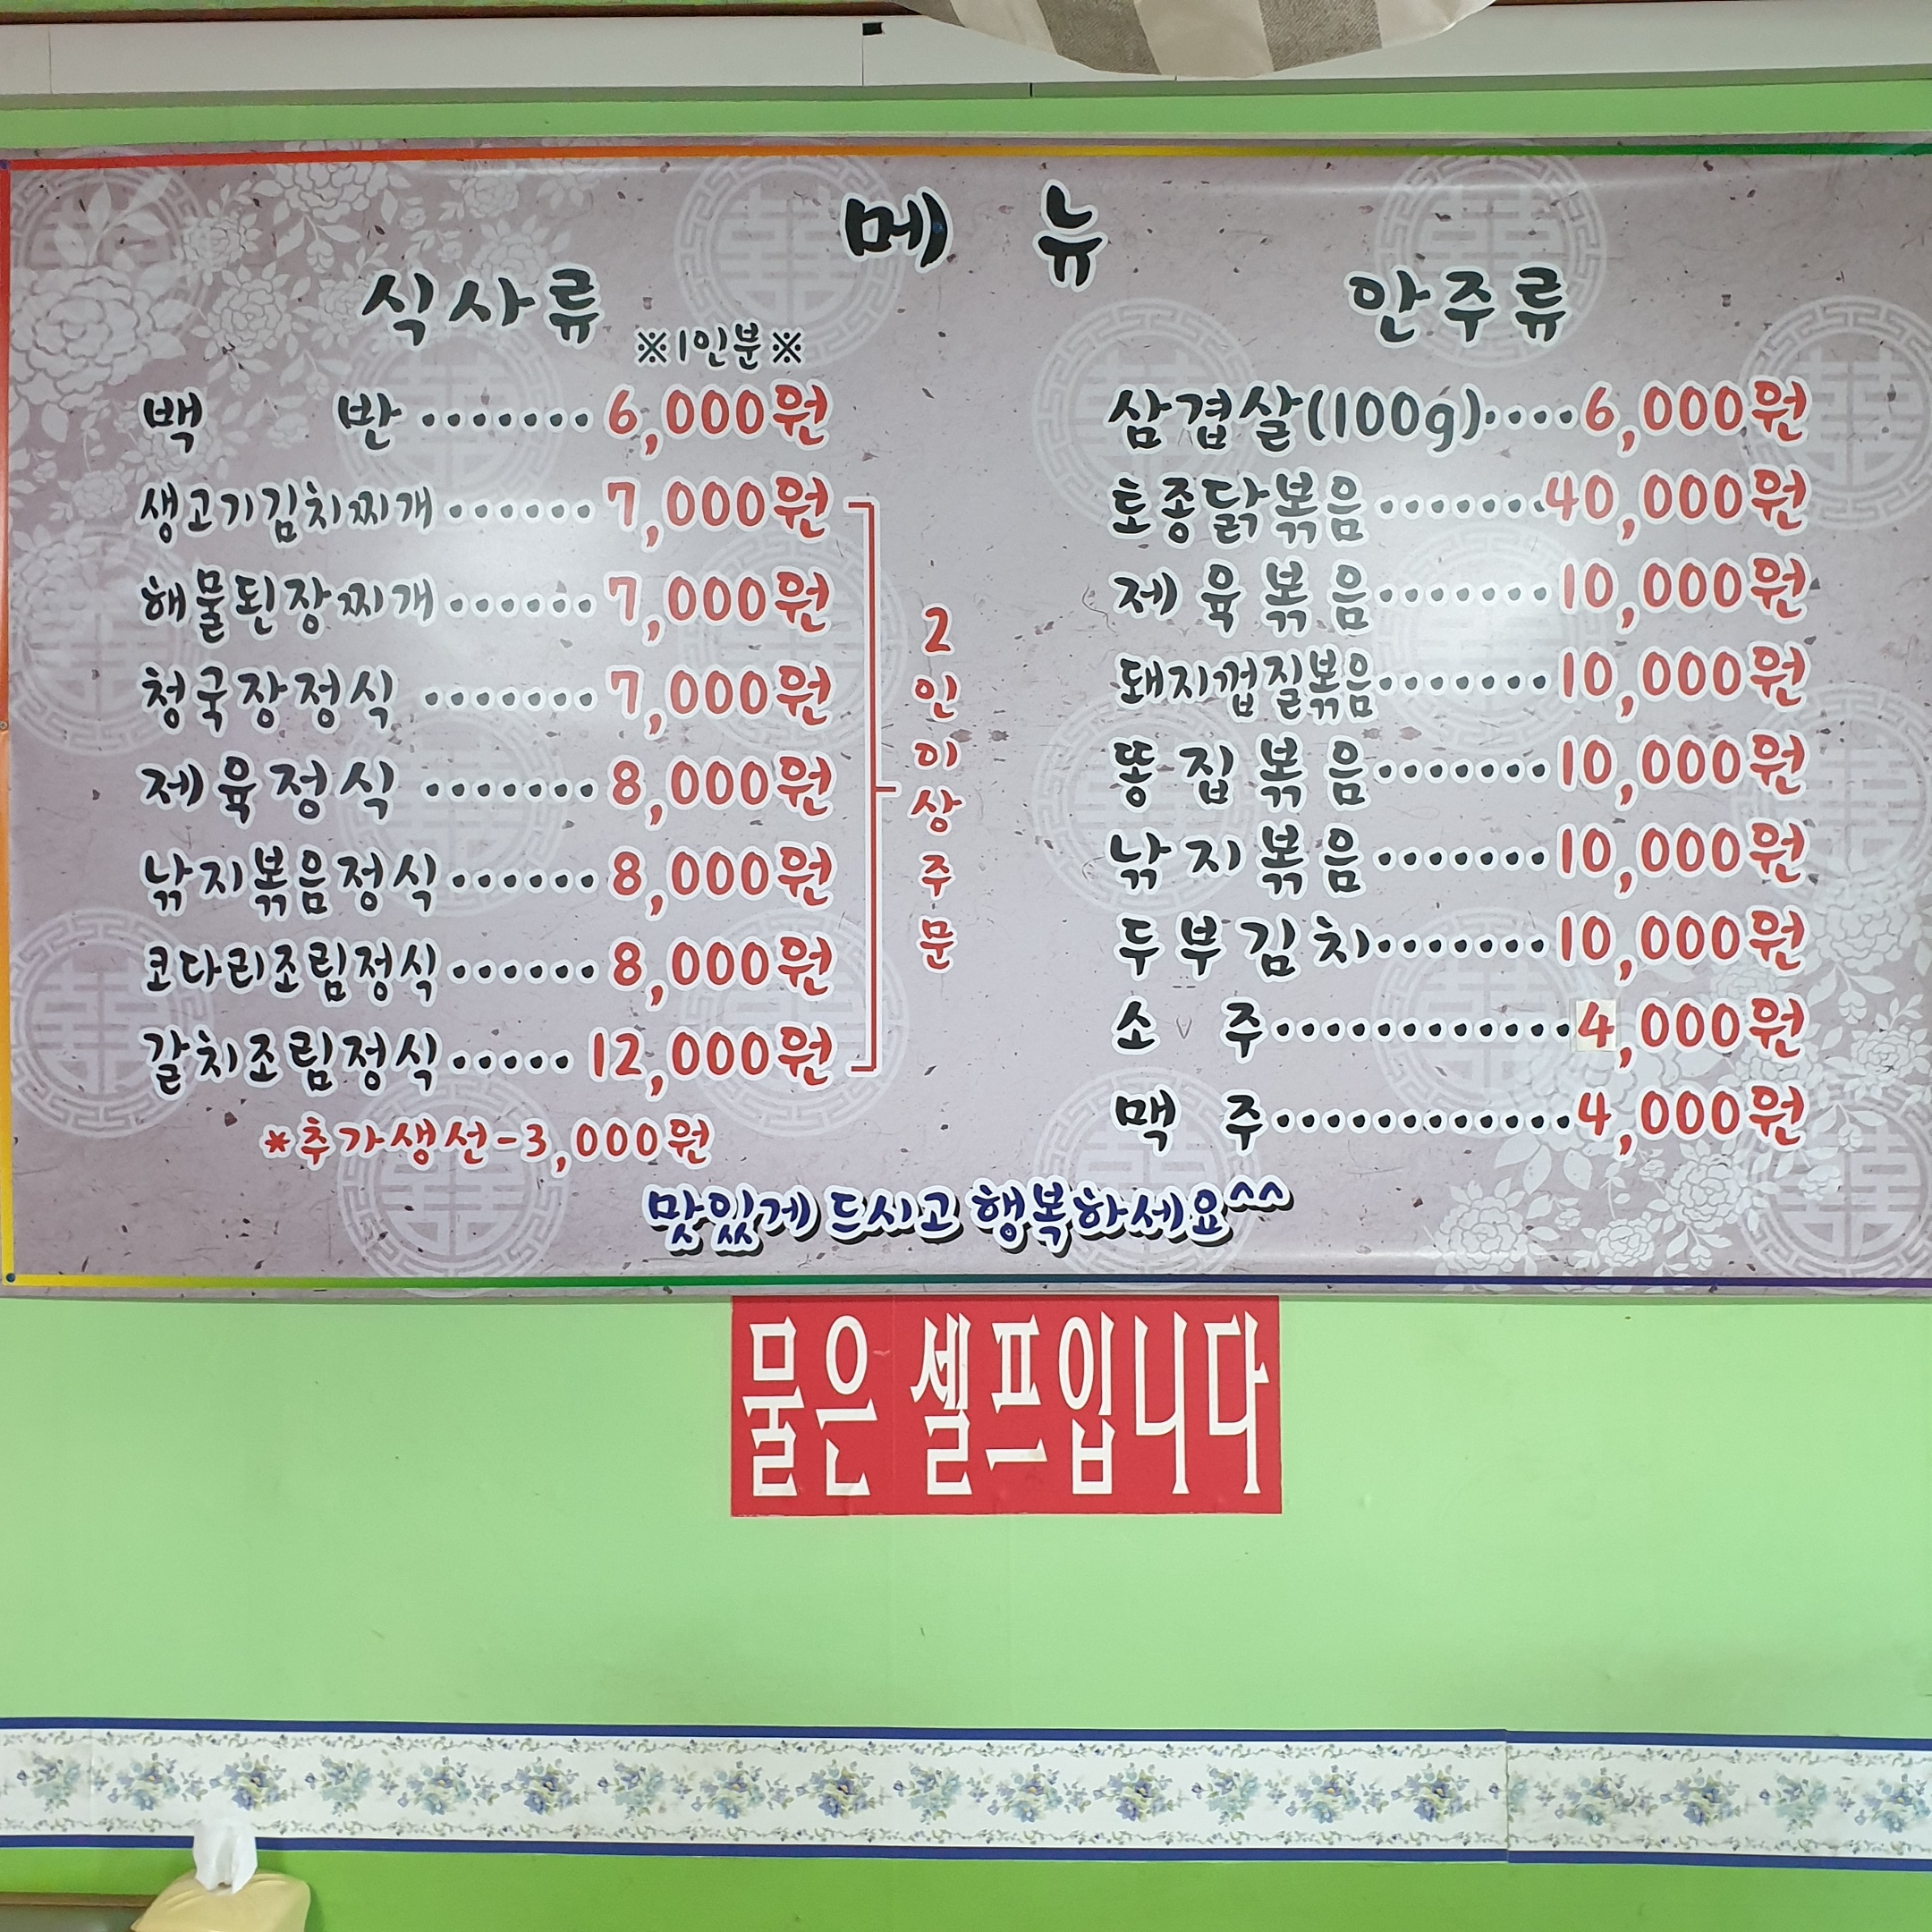 메 뉴
식사류
※1인분※
백 반.......6,000원
생고기김치찌개......7,000원
해물된장찌개......7,000원
청국장정식.......7,000원
제육정식.......8,000원
낚지볶음정식......8,000원
코다리조림정식......8,000원
갈치조림정식.....12,000원
2인이상주문
*추가생선-3,000원
안주류
삼겹살(100g)....6,000원
토종닭볶음.......40,000원
제육볶음.......10,000원
돼지껍질볶음.......10,000원
똥집볶음.......10,000원
낚지볶음.......10,000원
두부김치.......10,000원
소 주............4,000원
맥 주............4,000원
맛있게 드시고 행복하세요^^
물은 셀프입니다